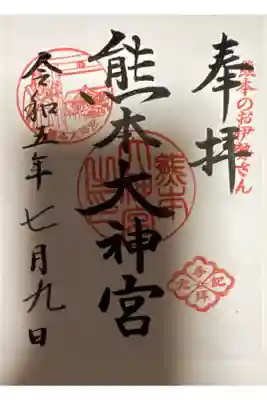 奉拝
熊本のお伊勢さん
熊本大神宮
令和五年七月九日